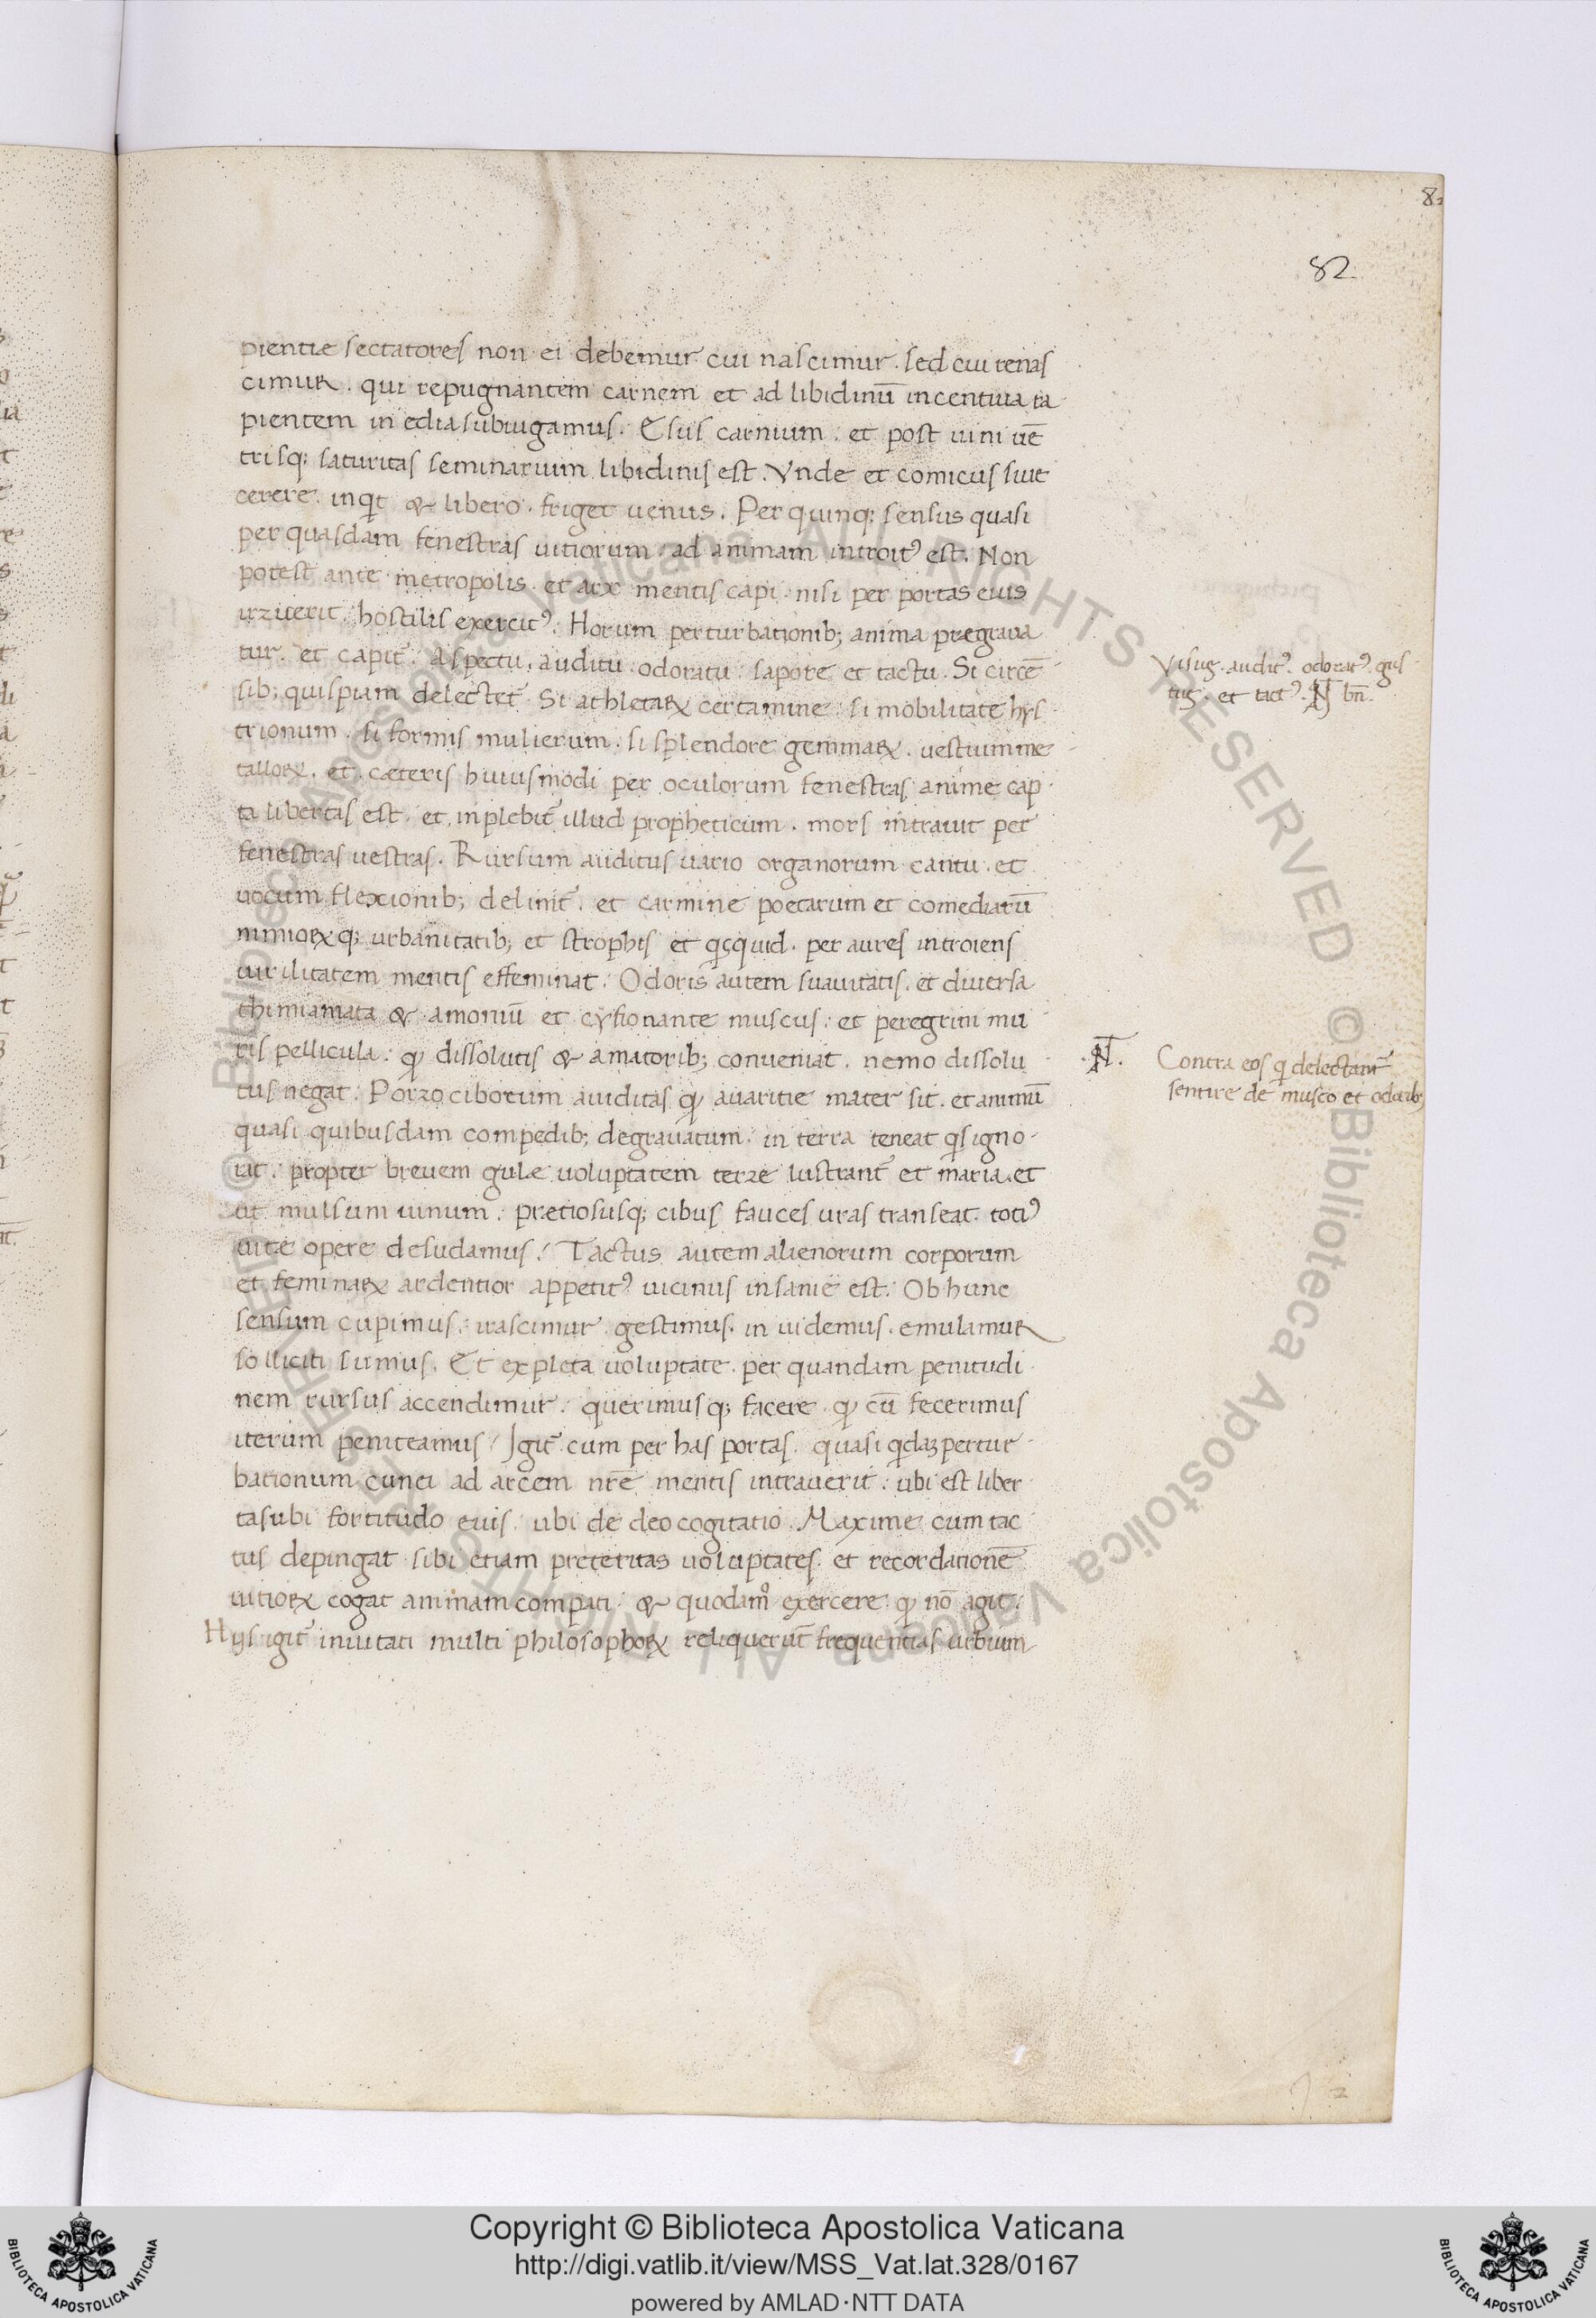 82
82
pientiæ sectatores non ei debemur cui nascimur. sed cui renas
cimur. qui repugnantem carnem et ad libidinū incentiua ra
pientem inedia subiugamus. Esus carnium. et post uini uē
trisq; saturitas seminarium libidinis est. Vnde et comicus siue
cerere. inqt & libero. friget uenus. Per quinq; sensus quasi
per quasdam fenestras uitiorum ad animam introit⁹ est. Non
potest ante metropolis et arx mentis capi nisi per portas eius
irruerit hostilis exercit⁹. Horum perturbationib; anima prægraua
tur. et capit̄. Aspectu, auditu. odoratu. sapore et tactu. Si circē
sib; quispiam delectet̄. Si athletaꝝ certamine. si mobilitate hys
trionum. si formis mulierum. si splendore gemmaꝝ. uestium me
talloꝝ. et cæteris huiusmodi per oculorum fenestras anime cap
ta libertas est. et inplebit̄ illud propheticum. mors intrauit per
fenestras uestras. Rursum auditus uario organorum cantu. et
uocum flexionib; delinit̄. et carmine poetarum et comediarū
mimioꝝq; urbanitatib; et strophis et qcquid. per aures introiens
uirilitatem mentis effeminat. Odoris autem suauitatis. et diuersa
thimiamata & amoniū et cyfionante muscus. et peregrini mu
ris pellicula. qꝫ dissolutis & amatorib; conueniat. nemo dissolu
tus negat. Porro ciborum auiditas qꝫ auaritie mater sit. et animū
quasi quibusdam compedib; degrauatum. in terra teneat qs igno
rat. propter breuem gulæ uoluptatem terre lustrant̄ et maria. et
ut mulsum uinum. pretiosusq; cibus fauces uras transeat. toti⁹
uitæ opere desudamus. Tactus autem alienorum corporum
et feminaꝝ ardentior appetit⁹ uicinus insanie est. Ob hunc
sensum cupimus. irascimur. gestimus. inuidemus. emulamur
solliciti sumus. Et expleta uoluptate. per quandam penitudi
nem rursus accendimur. querimusq; facere. qꝫ cū fecerimus
iterum peniteamus. Igit̄ cum per has portas. quasi qdaꝫ pertur
bationum cunei ad arcem nr̄e mentis intrauerit. ubi est liber
tas ubi fortitudo euis. ubi de deo cogitatio. Maxime cum tac
tus depingat sibi etiam preteritas uoluptates. et recordationē
uitioꝝ cogat animam compati. & quodam⁹ exercere. qꝫ nō agit.
Hijs igit̄ inuitati multi philosophoꝝ reliquerūt frequentias urbium
Visus. audit⁹. odorat⁹. gus
tus. et tact⁹. bn̄.
Contra eos q delectant̄
sentire de musco et odorib;
Copyright © Biblioteca Apostolica Vaticana
http://digi.vatlib.it/view/MSS_Vat.lat.328/0167
powered by AMLAD·NTT DATA
BIBLIOTECA APOSTOLICA VATICANA
BIBLIOTECA APOSTOLICA VATICANA
© Biblioteca Apostolica Vaticana ALL RIGHTS RESERVED
© Biblioteca Apostolica Vaticana ALL RIGHTS RESERVED